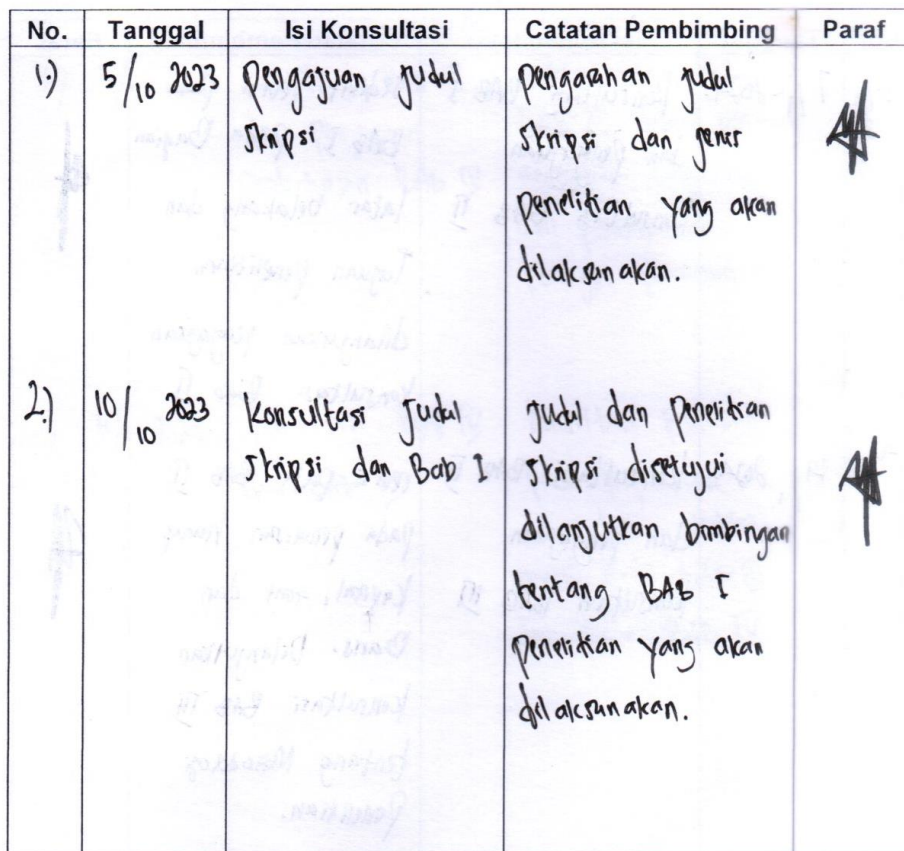 No. Tanggal Isi Konsultasi Catatan Pembimbing Paraf
1.) 5/10 2023 Pengajuan Judul Pengarahan Judul
Skripsi Skripsi dan jenis
Penelitian yang akan
dilaksanakan.
2.) 10/10 2023 Konsultasi Judul Judul dan Penelitian
Skripsi dan Bab I Skripsi disetujui
dilanjutkan bimbingan
tentang BAB I
Penelitian yang akan
dilaksanakan.